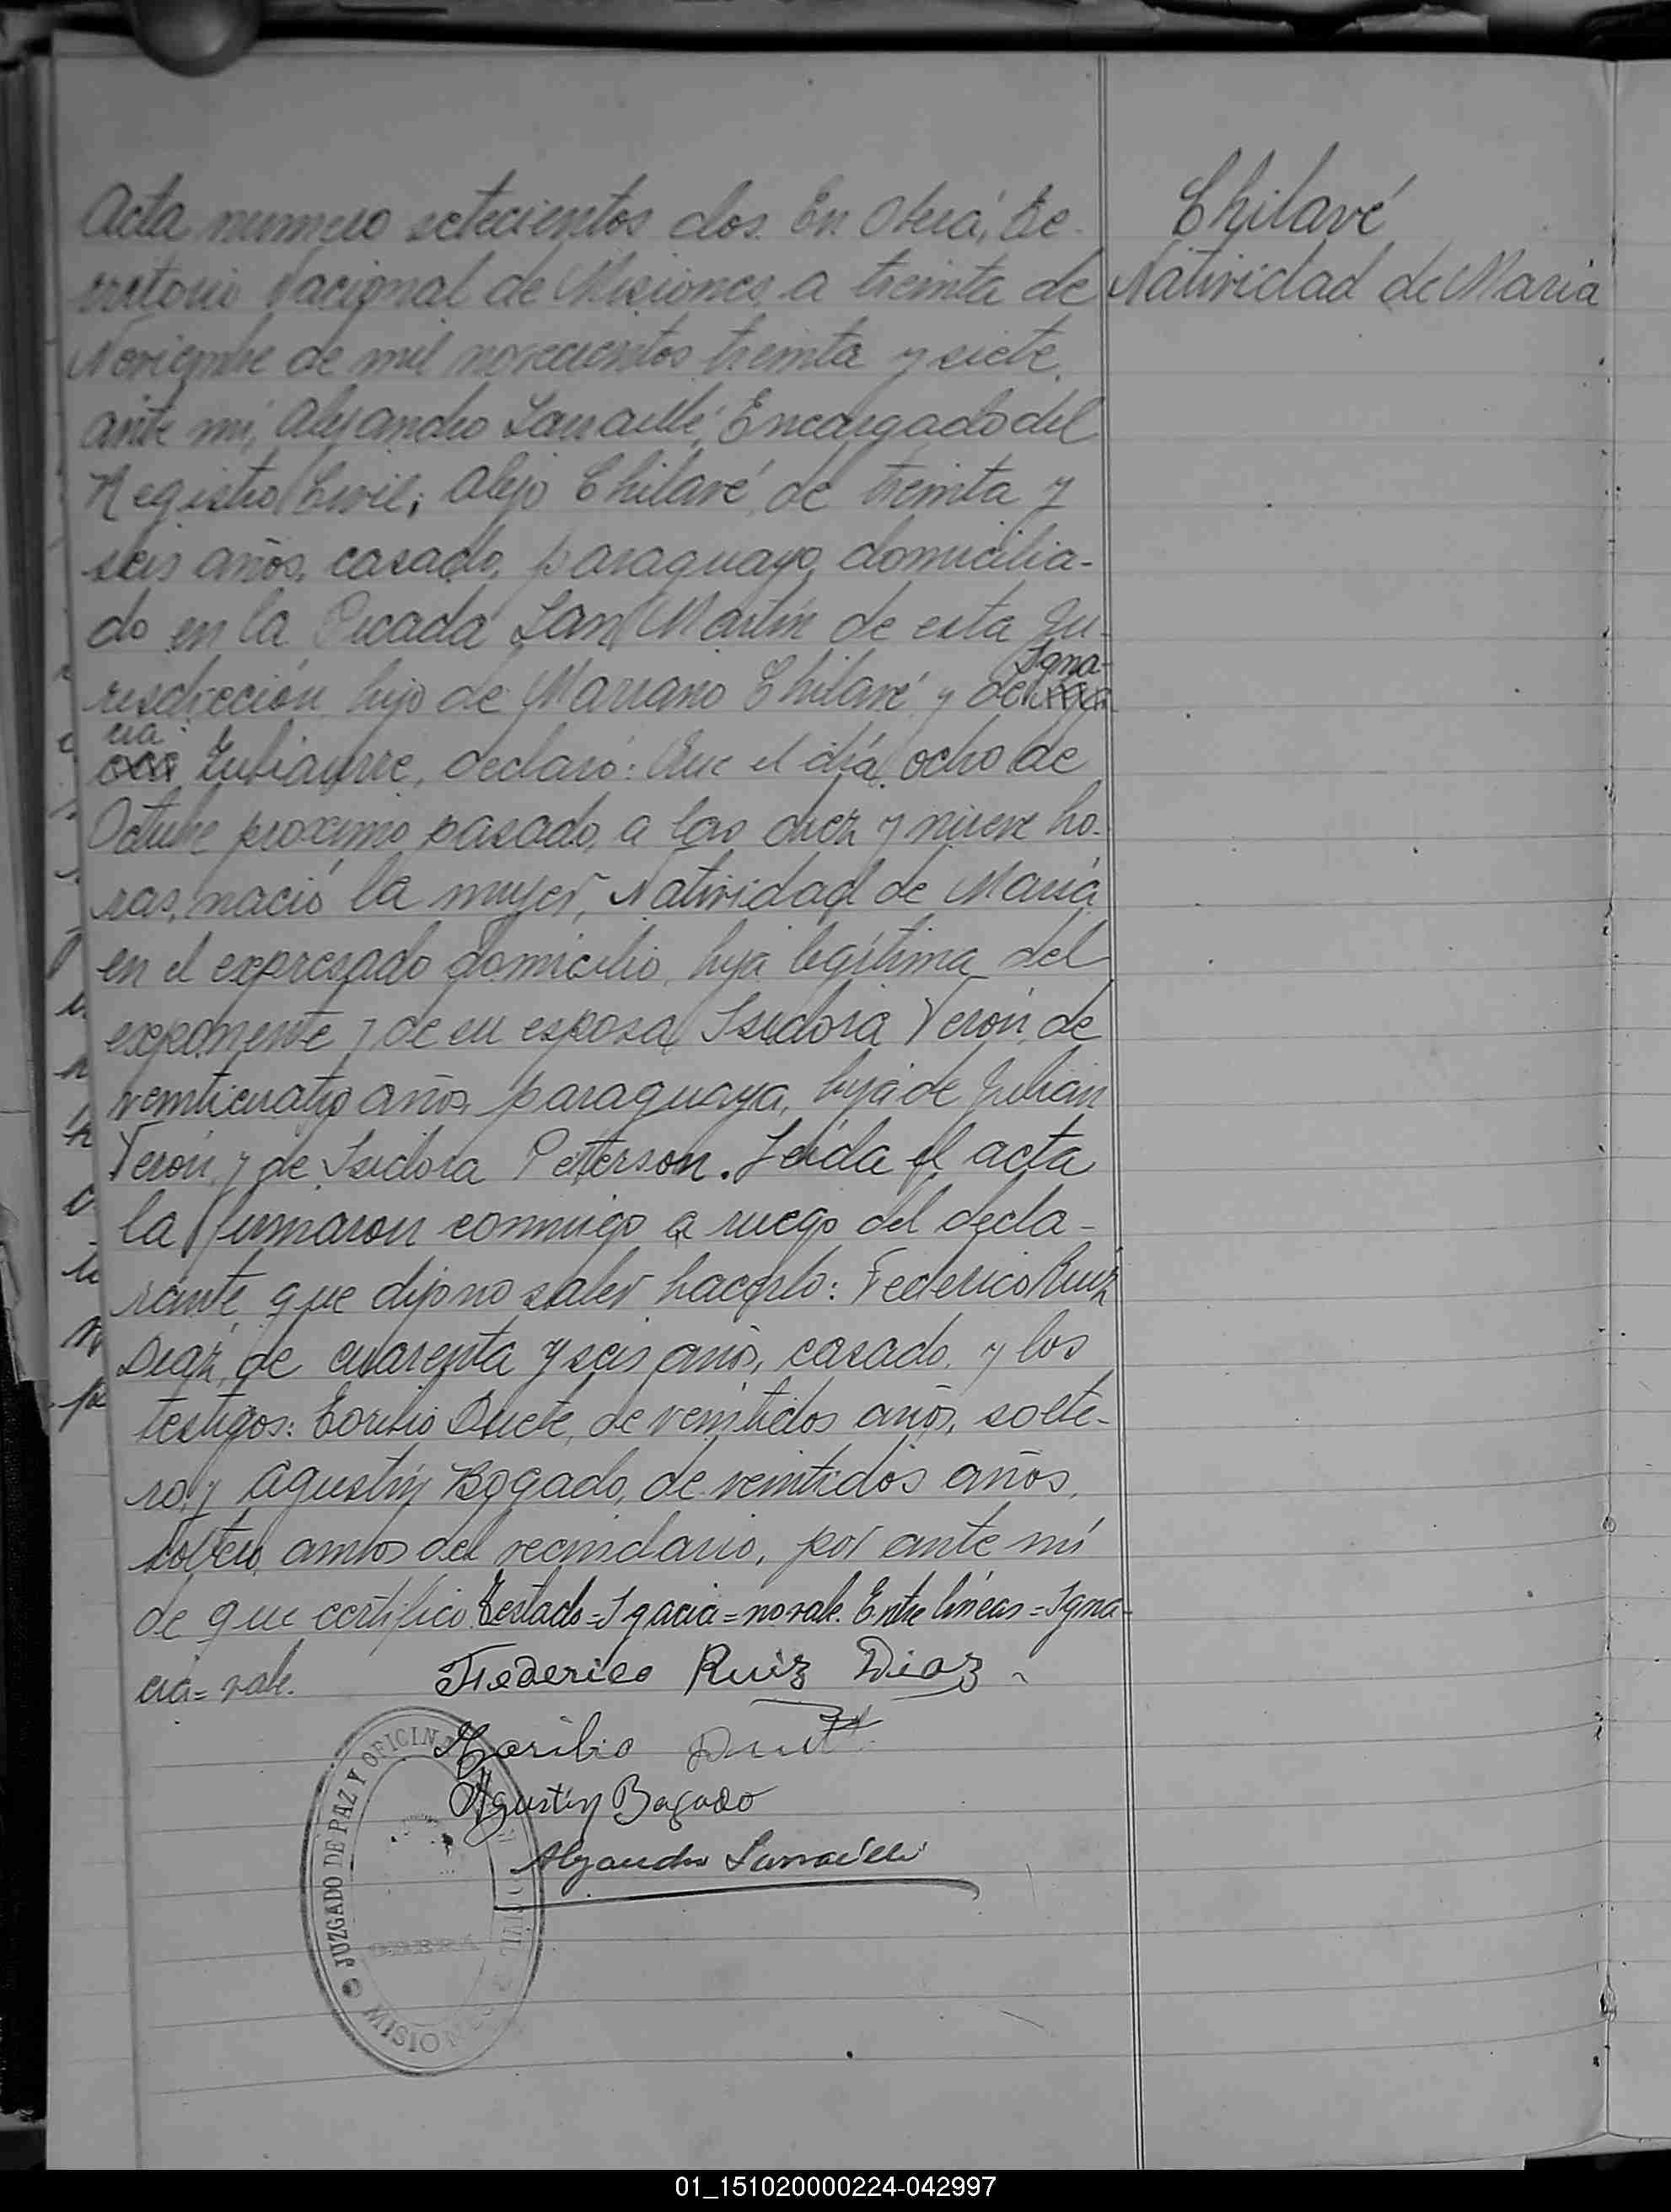 Chilavé
Natividad de Maria
Acta numero setecientos dos. En Oberá, Te-
rritorio Nacional de Misiones, a treinta de
Noviembre de mil novecientos treinta y siete,
ante mí, Alejandro Larraillé, Encargado del
Registro Civil; Alejo Chilavé, de treinta y
seis años, casado, paraguayo, domicilia-
do en la Picada San Martín de esta Ju-
Igna-
risdicción, hijo de Mariano Chilavé y de
cia
declaró: Que el día ocho de
Octubre proximo pasado, a las diez y nueve ho-
ras, nació la mujer, Natividad de Maria,
en el expresado domicilio, hija legítima del
exponente y de su esposa Isidora Verón, de
veinticuatro años, paraguaya, hija de Julián
Verón, y de Isidora Petterson. Leida el acta
la firmaron conmigo a ruego del decla-
rante, que dijo no saber hacerlo: Federico Ruiz
Diaz, de cuarenta y seis años, casado, y los
testigos: de veintidos años, solte-
ro, y Agustín Bogado, de veintidos años,
soltero, ambos del vecindario, por ante mí
de que certifico. Testado=Igacia=no vale. Entre líneas=Igna-
cia=vale.
Federico Ruiz Diaz
Agustín Bogado
Alejandro Larraillé
JUZGADO DE PAZ Y OFICINA
CIVIL
OBERA
MISIONES
01_151020000224-042997